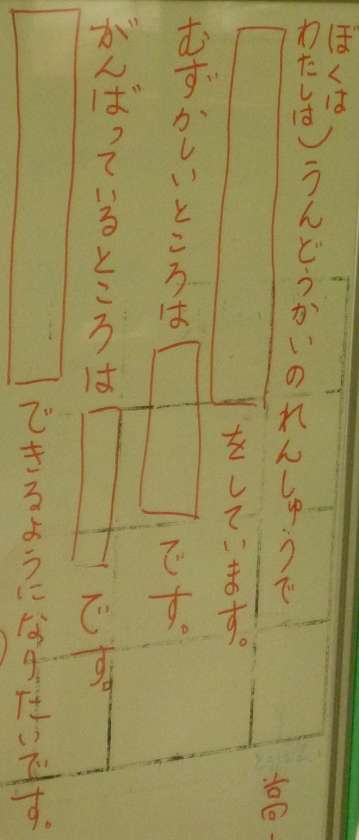 ぼくは
わたしは)うんどうかいのれんしゅうで
をしています。
むずかしいところは
です。
がんばっているところは
です。
できるようになりたいです。
高